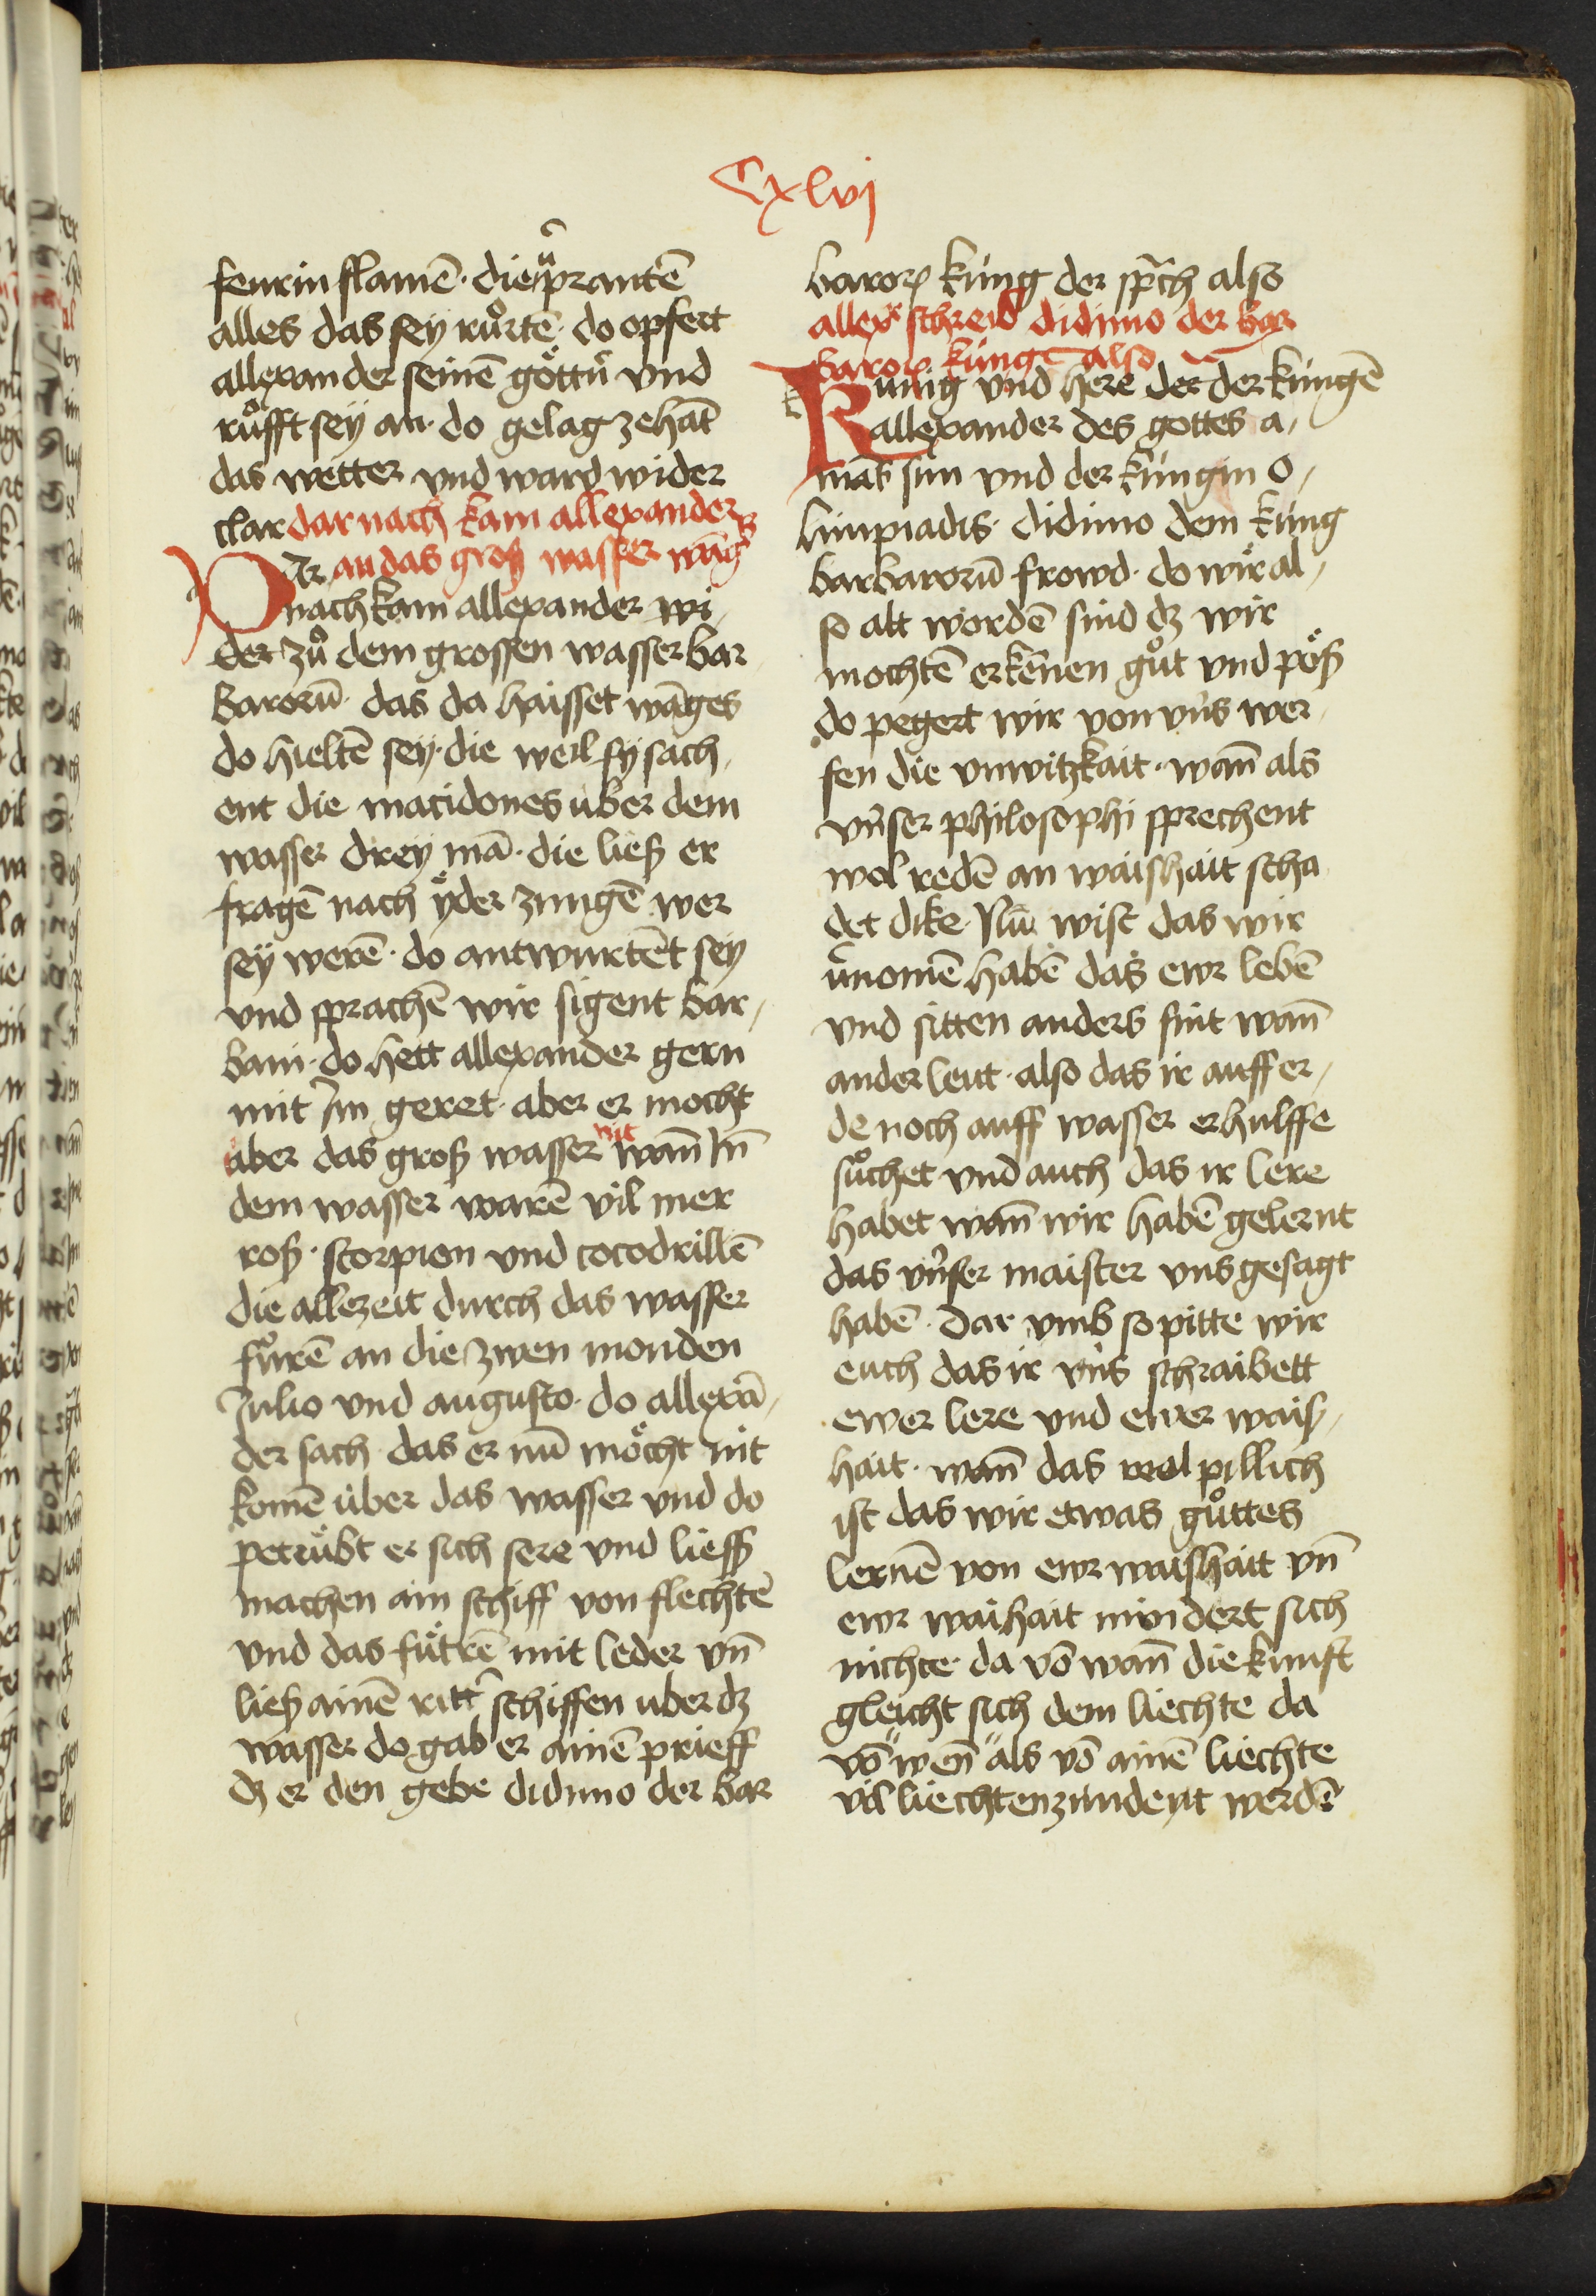 Cxlvj
feurin flamē · die v̄prantē
alles das sey růrtē · do opfert
allexander seinē göttn̄ vnd
růfft sey an · do gelag zehāt
das wetter vnd ward wider
clar dar nach kam allexander
Ar an das groß wasser wāges
nach kam allexander wi,
der zů dem grossen wasser bar
barorū · das da haisset wāges
do hieltē sey · die weil sy sach,
ent die macidones über dem
wasser drey mā · die ließ er
fragē nach yder zungē wer
sey werē · do antwurtēt sey
vnd sprachē wir sigent bar,
bani · do hett allexander gern
mit Im geret · aber er mocht
über das groß wasser nit wan̄ In̄
dem wasser warē vil mer
roß · scorpion vnd cocodrillē
die allezeit durch das wasser
fůrē an die zwen monden
Julio vnd augusto · do allexā,
der sach · das er nū möcht nit
komē über das wasser vnd do
petrübt er sich sere vnd liess
machen ain schiff von flechtē
vnd das fütrē mit leder vn̄
ließ ainē ritt' schiffen uber dz
wasser do gab er ainē prieff
dz er den gebe didimo der bar
baroꝝ küng der sp̄ch also
allexr schreib didimo der bar
baroꝝ künge also
Kunig vnd here der der küngē
allexander des gottes a,
mak sun vnd der küngin o,
limpiadis · didimo dem küng
barbarorū frowd · do wir al,
so alt wordē sind dz wir
mochtē erkēnen gůt vnd pöß
do pegert wir von vns wer,
fen die vnwitzkait · wan̄ als
vnser philosophi sprechent
wol redē an waishait scha
det dike · Nu wist das wir
v̄nomē habē das ewr lebē
vnd sitten anders sint wan̄
ander leut · also das ir auff er,
de noch auff wasser erhulffe
sůchet vnd auch das ir lere
habet wan̄ wir habē gelernt
das vnser maister vns gesagt
habē · dar vmb so pitte wir
euch das ir vns schraibett
ewer lere vnd ewer wais,
hait · wan̄ das wol pillich
ist das wir etwas gůttes
lernē von ewr waishait vn̄
ewr waihait mindert sich
nichte · da vō wan̄ die kunst
gleicht sich dem liechte da
vō wen̄ als vō ainē liechte
vil liechten zundent werdē